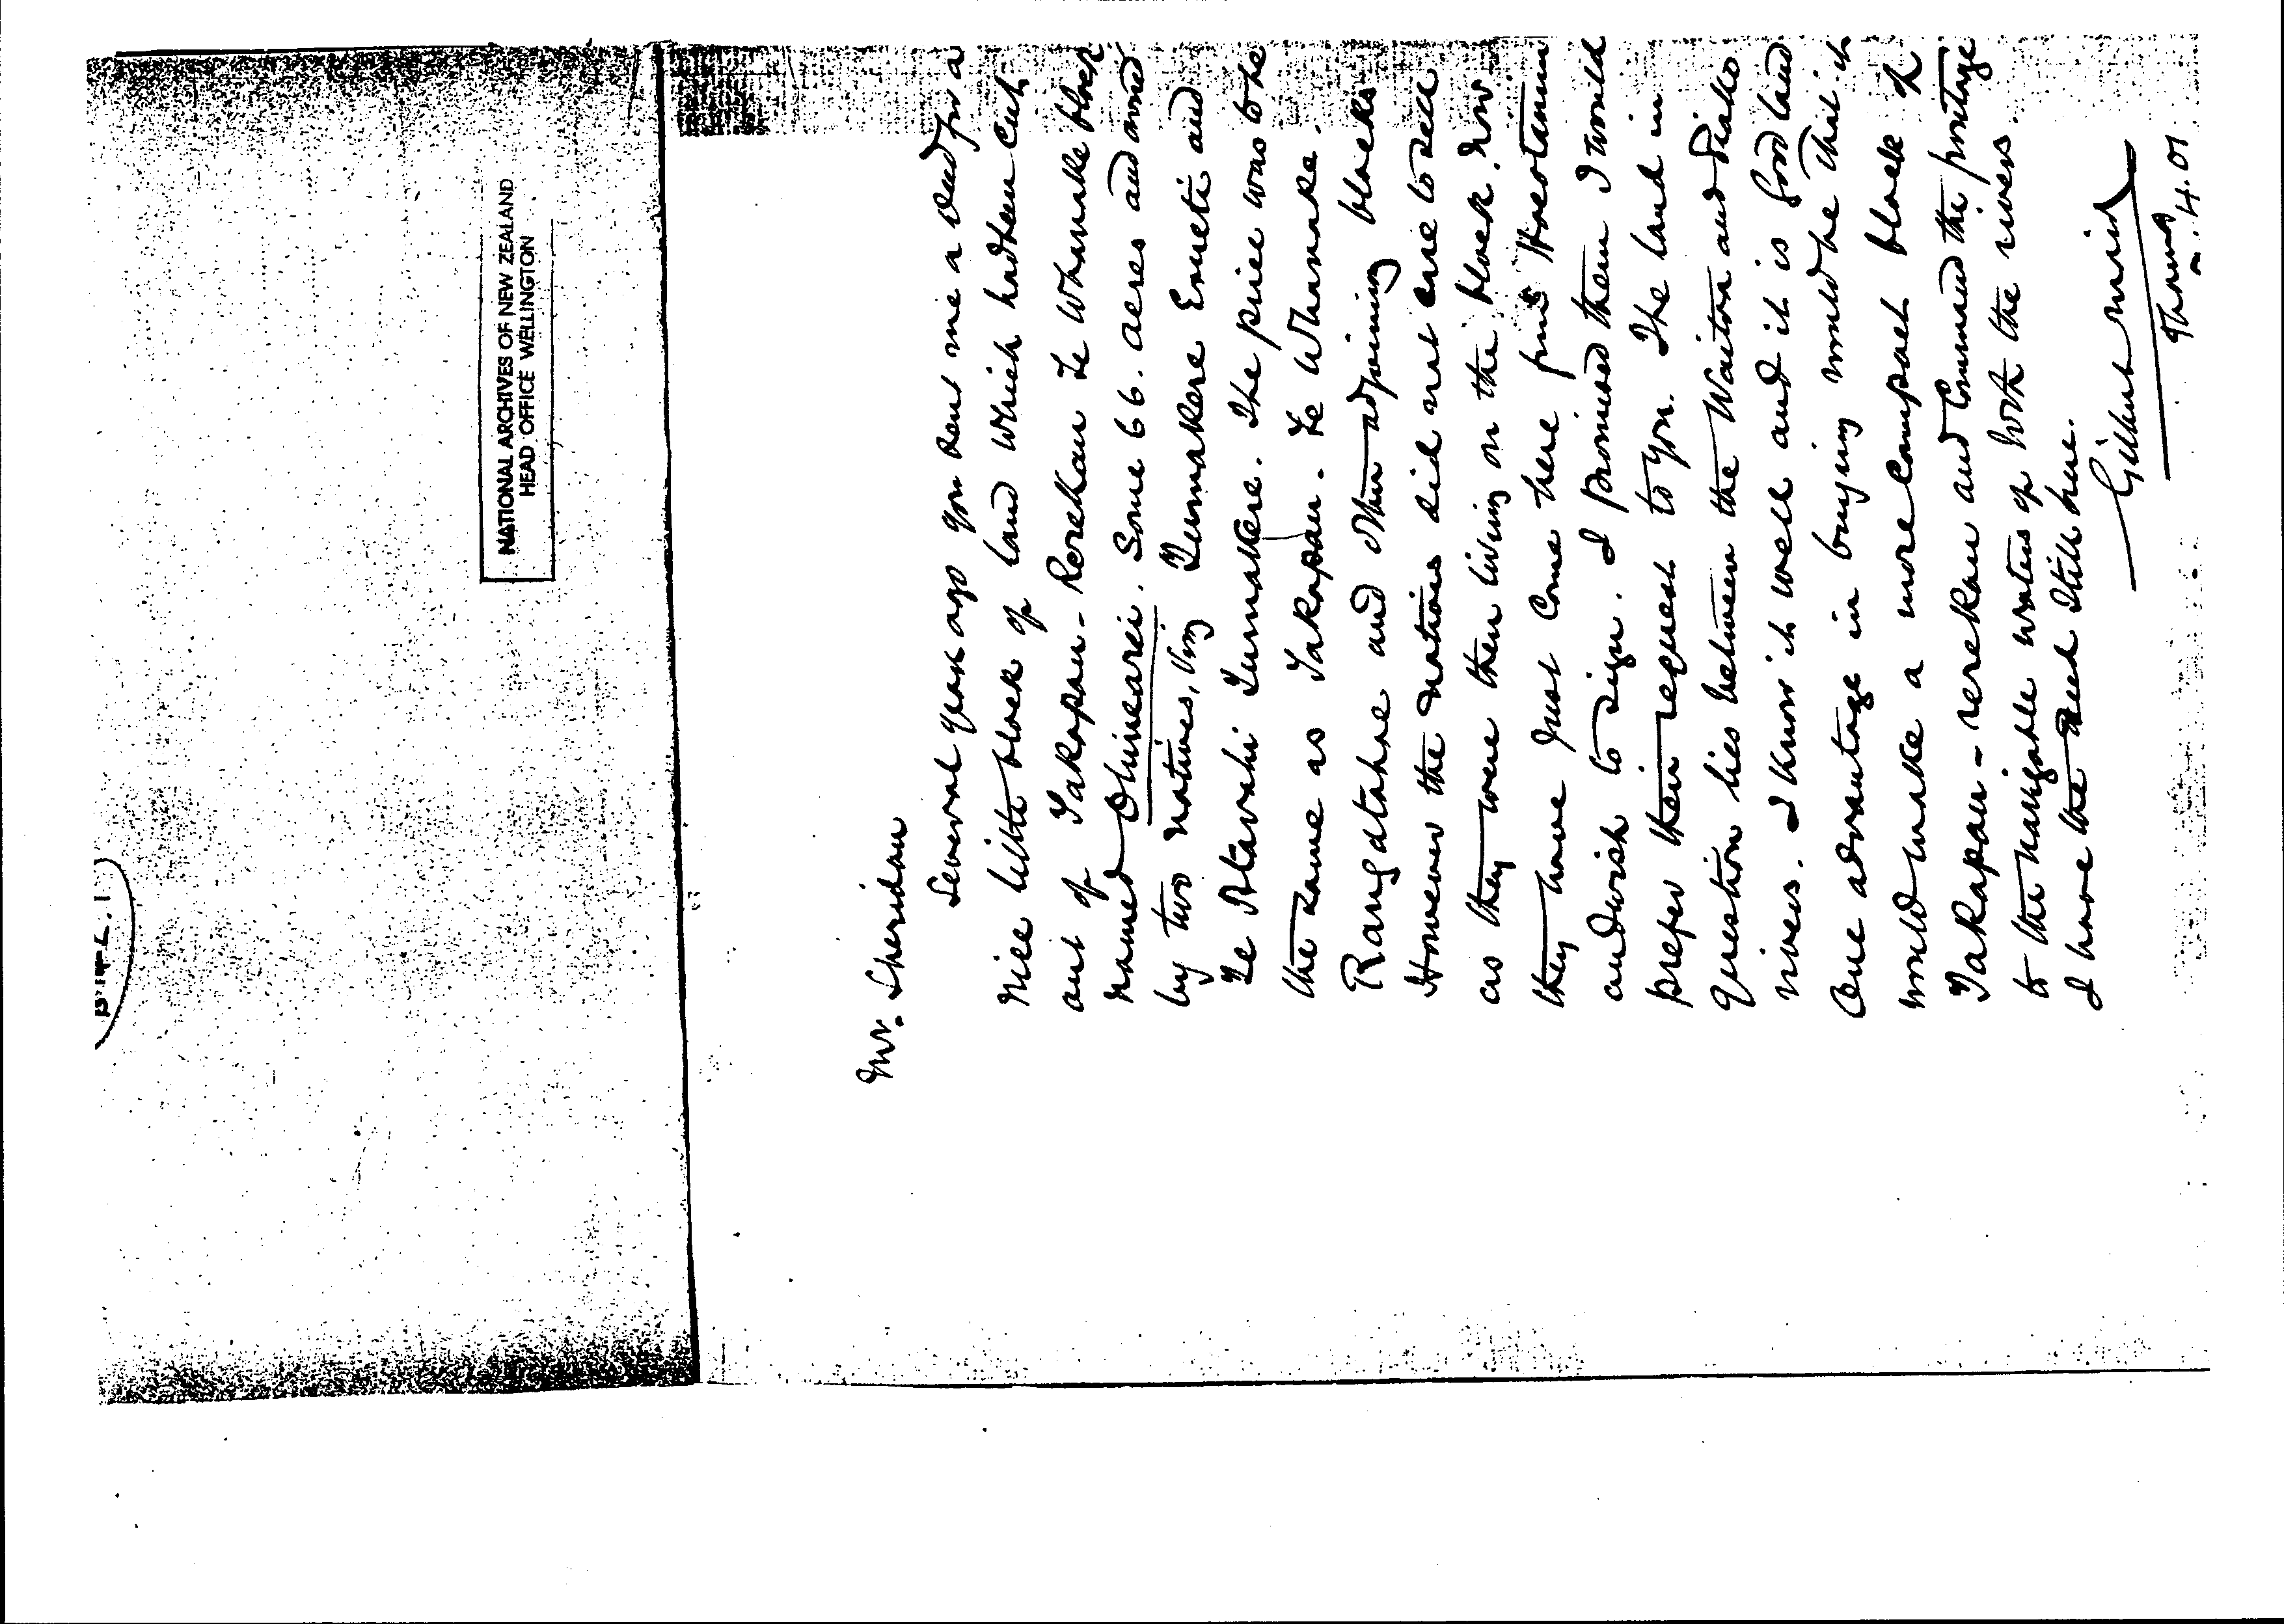 NATIONAL ARCHIVES OF NEW ZEALAND
HEAD OFFICE WELLINGTON
Mr. Sheridan
Several years ago you sent me a deed for a
nice little block of land which had been cut
out of Takapau-Rerekau Te Wharnake block
named Ohinearei. Some 66. acres and owned
by two natives, viz Turnakere Erueti and
Te Atarahi Turnakere. The price was to be
the same as Takapau. Te Wharnake.
Rangatahre and other adjoining blocks
However the natives did not care to sell
as they were then living on the block. Now
they have just come here from Haeotaunu
and wish to sign. I promised them I would
prefer their request to you. The land in
Question lies between the Waitoa and Piako
rivers. I know it well and it is good land
One advantage in buying would be that it
would make a more compact block of
Takapau-rerekau and command the frontage
to the navigable waters of both the rivers.
I have the deed still here.
Gilbert Mair
Thames
4.01